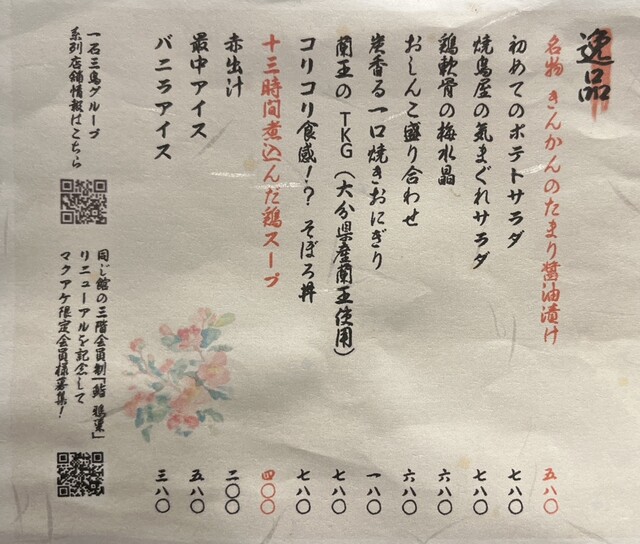 逸品
名物 きんかんのたまり醤油漬け 五八〇
初めてのポテトサラダ 七八〇
焼鳥屋の気まぐれサラダ 七八〇
鶏軟骨の梅水晶 六八〇
おしんこ盛り合わせ 六八〇
炭香る一口焼きおにぎり 一八〇
蘭王のTKG(大分県産蘭王使用) 七八〇
コリコリ食感!? そぼろ丼 七八〇
十三時間煮込んだ鶏スープ 四〇〇
赤出汁 二〇〇
最中アイス 五八〇
バニラアイス 三八〇
一石三鳥グループ
系列店舗情報はこちら
同じ館の三階会員制「鮨 鴉巣」
リニューアルを記念して
マクアケ限定会員様募集!